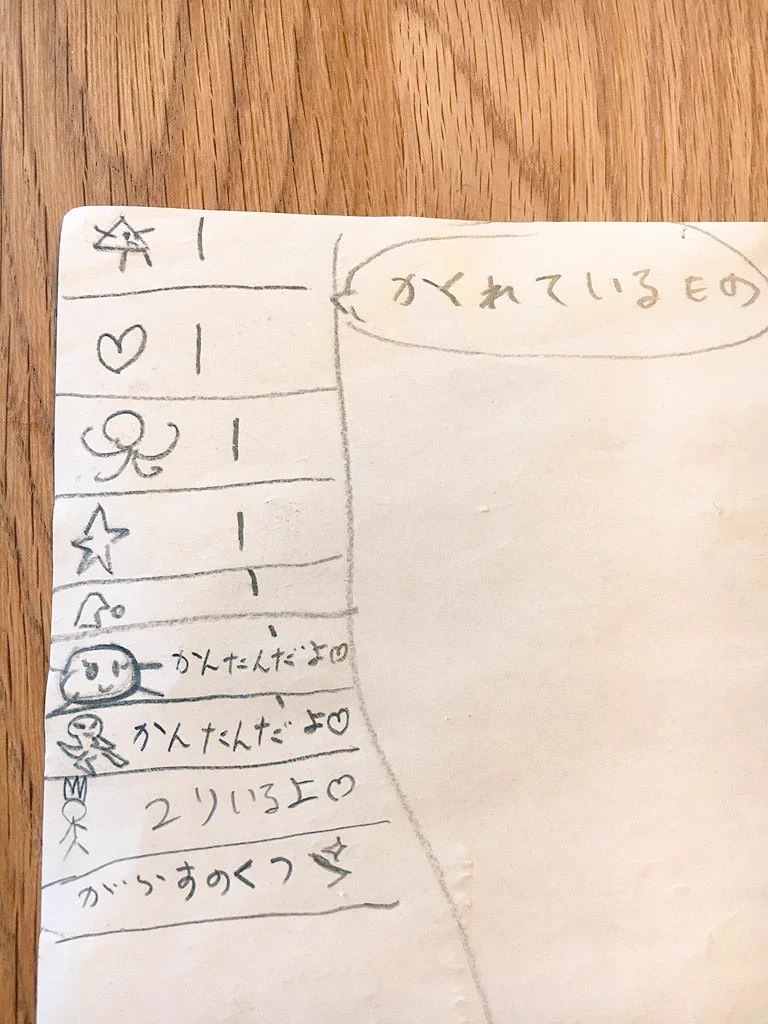 かくれているもの
1
1
1
1
1
かんたんだよ♡
かんたんだよ♡
2りいるよ♡
がらすのくつ